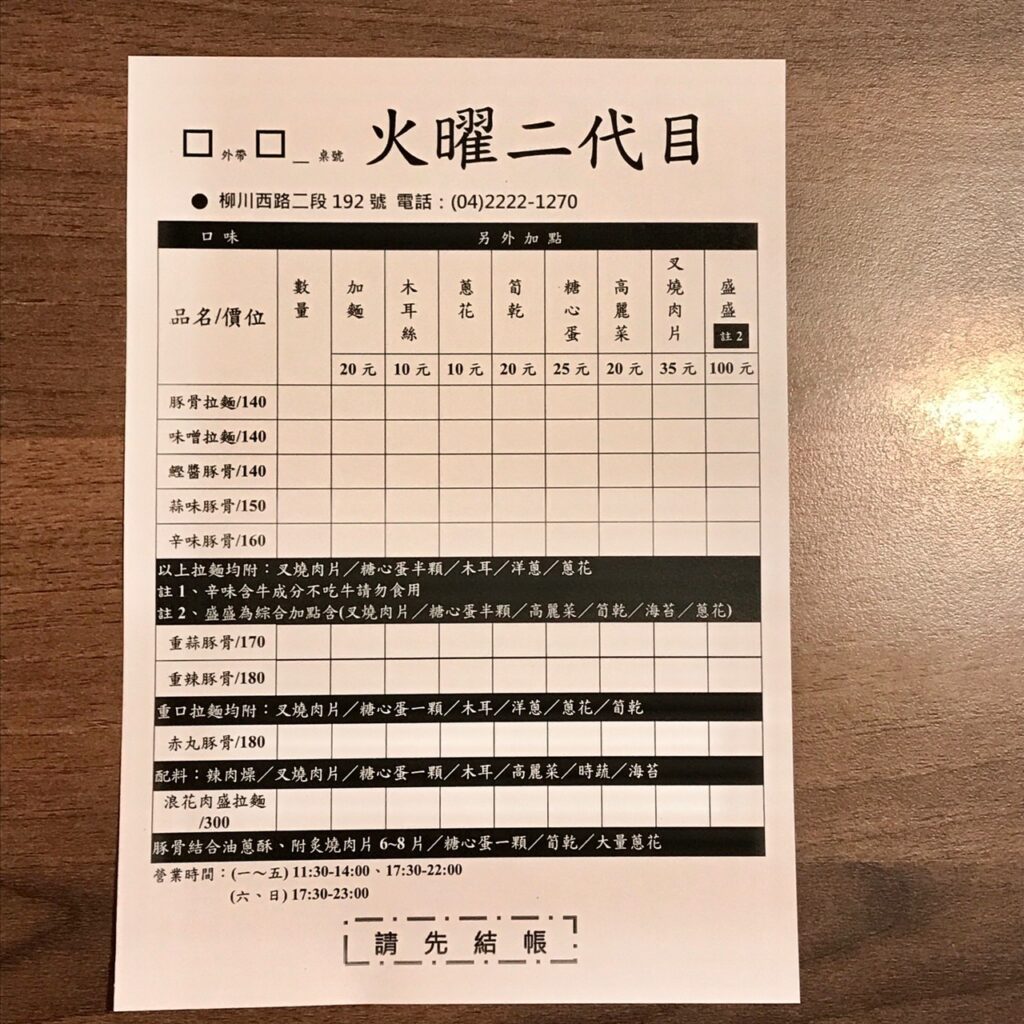 □外帶 □__桌號 火曜二代目
● 柳川西路二段 192 號 電話：(04)2222-1270
口味 另外加點
品名/價位 數量 加麵 木耳絲 蔥花 筍乾 糖心蛋 高麗菜 叉燒肉片 盛盛 註 2
20 元 10 元 10 元 20 元 25 元 20 元 35 元 100 元
豚骨拉麵/140
味噌拉麵/140
鰹醬豚骨/140
蒜味豚骨/150
辛味豚骨/160
以上拉麵均附：叉燒肉片／糖心蛋半顆／木耳／洋蔥／蔥花
註 1、辛味含牛成分不吃牛請勿食用
註 2、盛盛為綜合加點含(叉燒肉片／糖心蛋半顆／高麗菜／筍乾／海苔／蔥花)
重蒜豚骨/170
重辣豚骨/180
重口拉麵均附：叉燒肉片／糖心蛋一顆／木耳／洋蔥／蔥花／筍乾
赤丸豚骨/180
配料：辣肉燥／叉燒肉片／糖心蛋一顆／木耳／高麗菜／時蔬／海苔
浪花肉盛拉麵
/300
豚骨結合油蔥酥、附炙燒肉片 6~8 片／糖心蛋一顆／筍乾／大量蔥花
營業時間：(一～五) 11:30-14:00、17:30-22:00
(六、日) 17:30-23:00
請先結帳